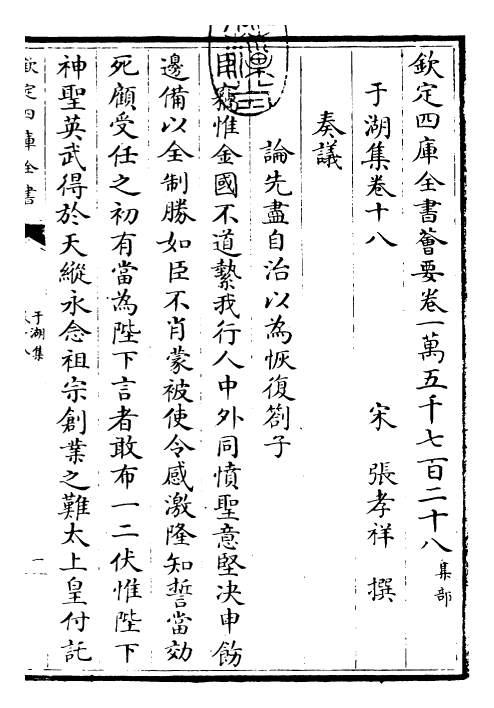 欽定四庫全書薈要卷一萬五千七百二十八 集部
于湖集卷十八 宋 張孝祥 撰
奏議
論先盡自治以為恢復劄子
臣竊惟金國不道縶我行人中外同憤聖意堅決申飭
邊備以全制勝如臣不肖蒙被使令感激隆知誓當効
死顧受任之初有當為陛下言者敢布一二伏惟陛下
神聖英武得於天縱永念祖宗創業之難太上皇付託
欽定四庫全書
于湖集
一